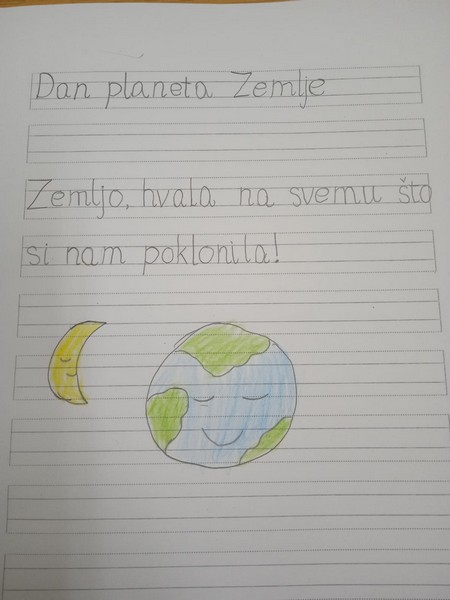 Dan planeta Zemlje
Zemljo, hvala na svemu što
si nam poklonila!